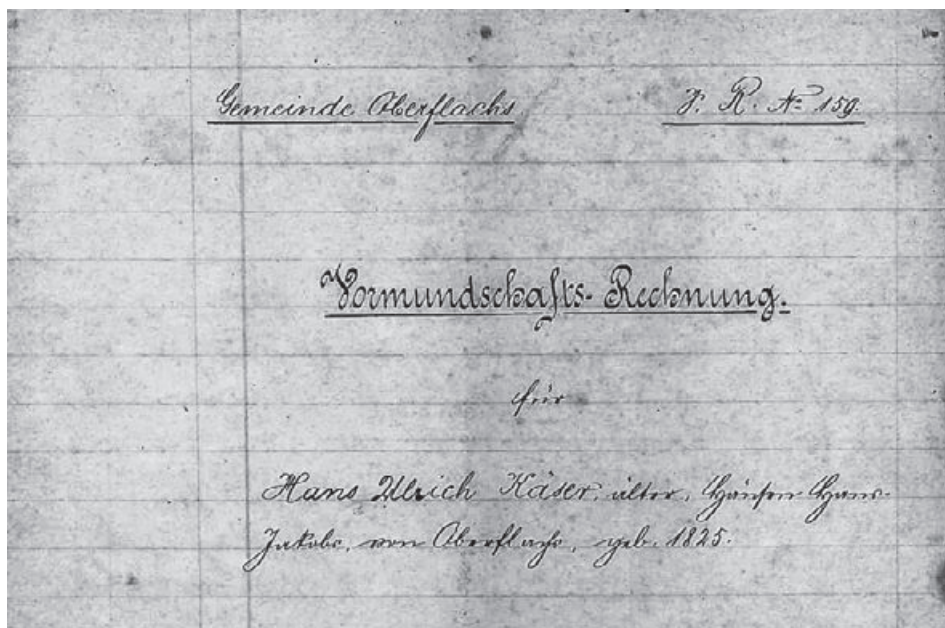 Gemeinde Oberflachs
F. R. No 159.
Vormundschafts-Rechnung.
für
Hans Ulrich Käser, älter, Hans-
Jakobs, von Oberflachs, geb. 1825.